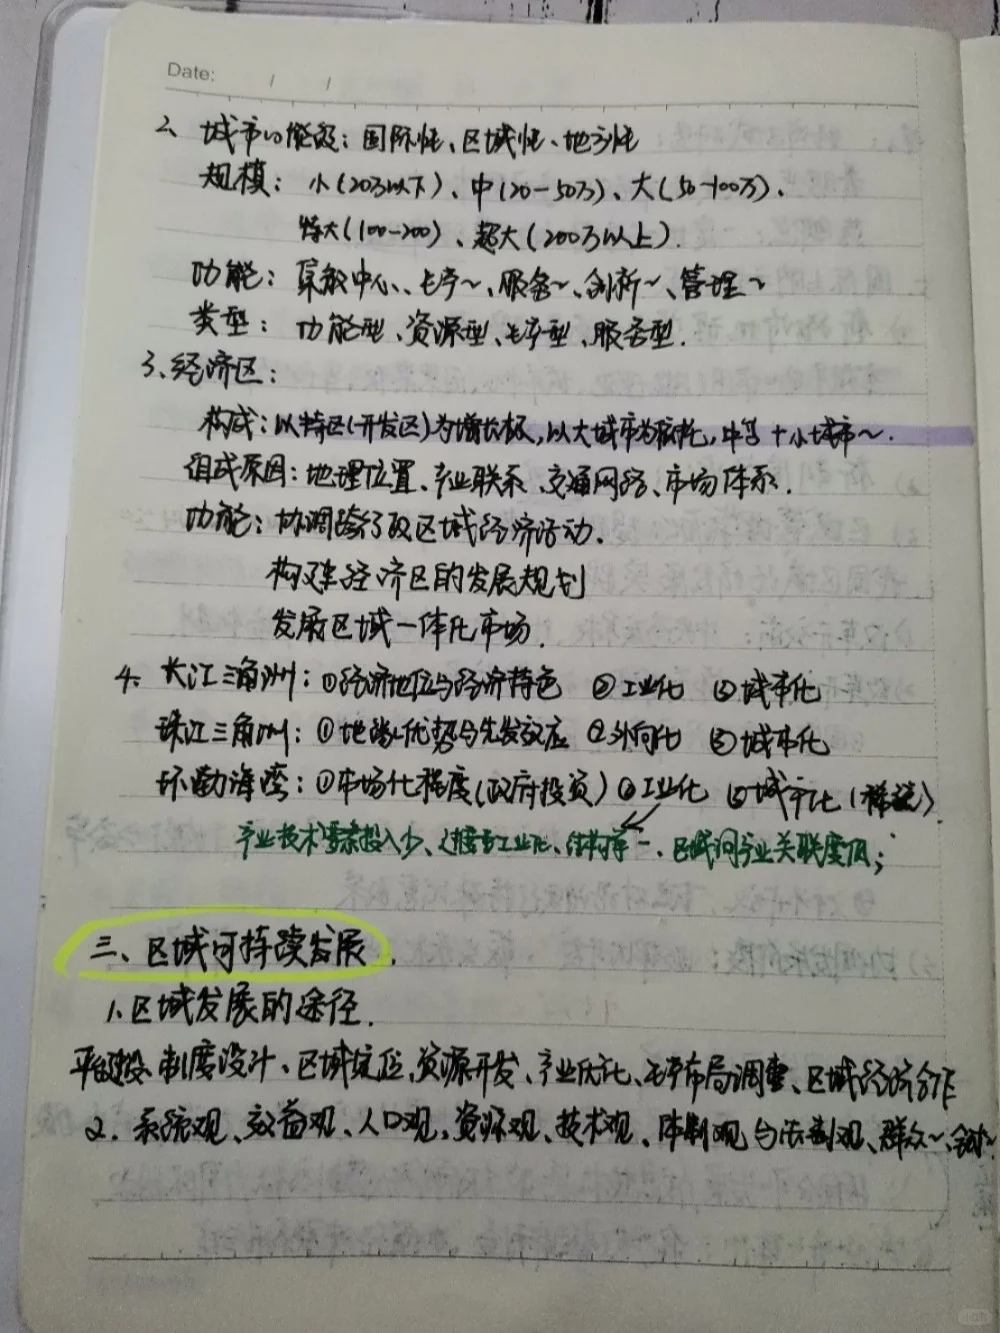 Date: / /
2、城市的能级：国际性、区域性、地方性
规模：小（20万以下）、中（20-50万）、大（50-100万）、
特大（100-200）、超大（200万以上）.
功能：集散中心、生产~、服务~、创新~、管理~
类型：功能型、资源型、生产型、服务型.
3、经济区：
构成：以特区（开发区）为增长极，以大城市为依托，中等+小城市~.
组成原因：地理位置、产业联系、交通网络、市场体系.
功能：协调跨行政区域经济活动.
构建经济区的发展规划
发展区域一体化市场.
4、长江三角洲：①经济地位与经济特色 ②工业化 ③城市化
珠江三角洲：①地缘优势与先发效应 ②外向化 ③城市化
环渤海湾：①市场化程度（政府投资）②工业化 ③城市化（
产业技术要素投入少、过重工业化、结构单一、区域间产业关联度低；
三、区域可持续发展.
1、区域发展的途径.
平台建设、制度设计、区域定位、资源开发、产业优化、生产布局调整、区域经济合作
2. 系统观、效益观、人口观、资源观、技术观、体制观与法制观、群众~、
小红书